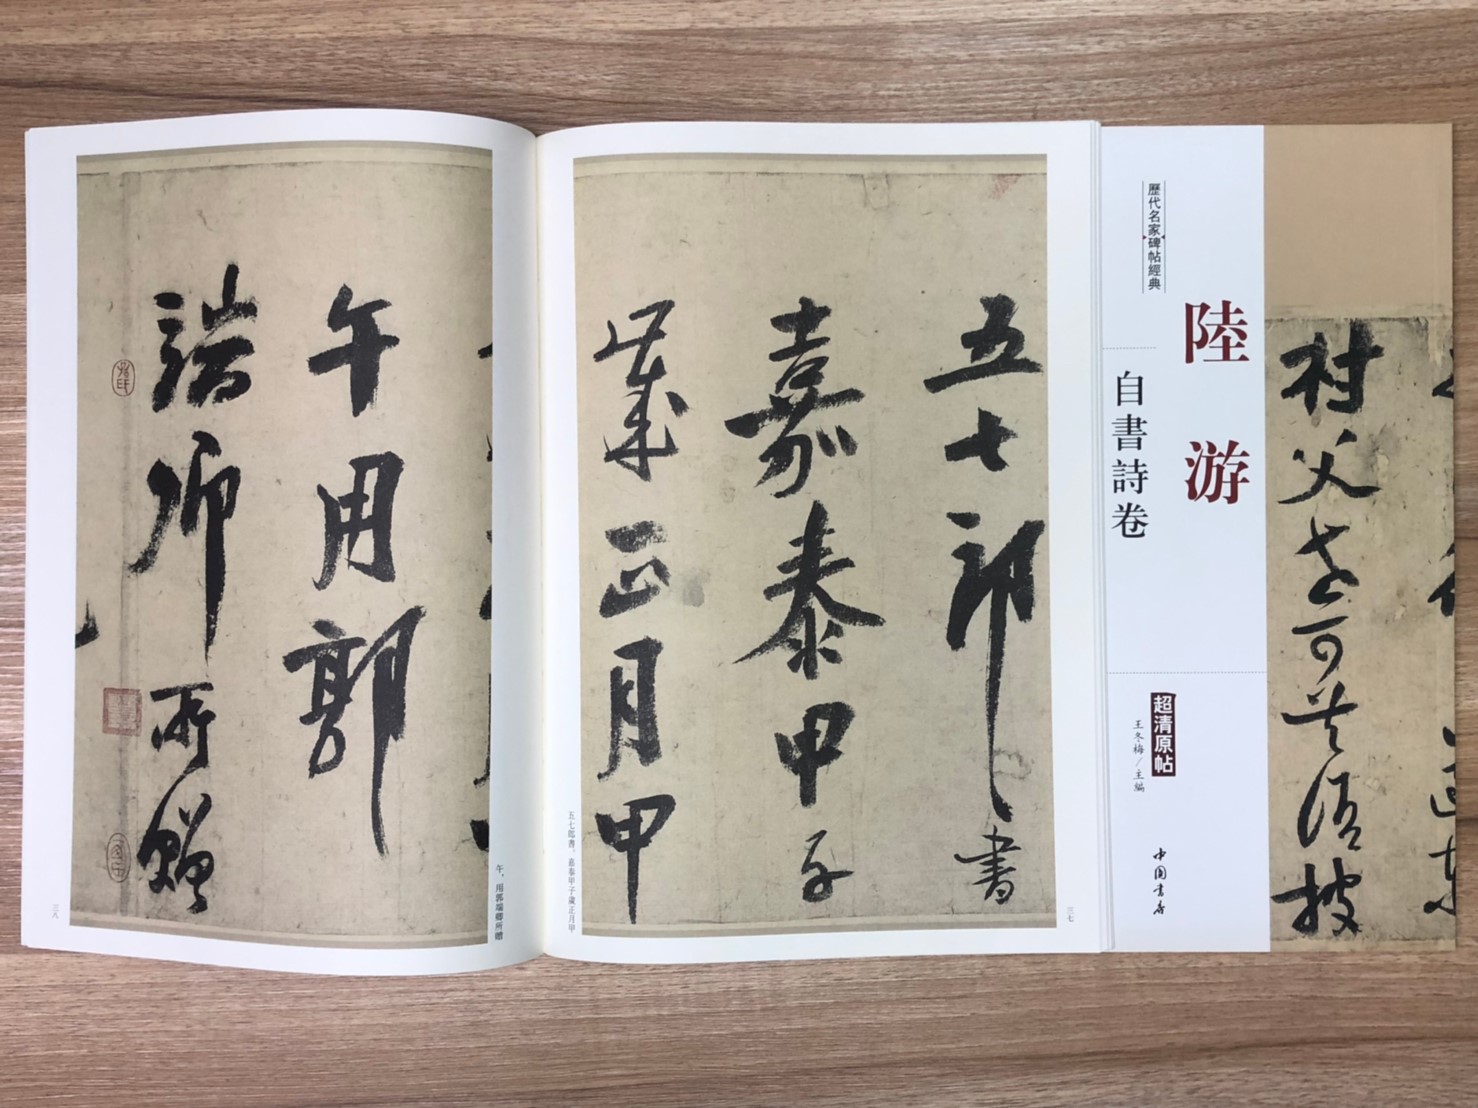 歷代名家碑帖經典
陸游
自書詩卷
超清原帖
王冬梅/主編
中國書店
村父老可共語披
五七郎書
嘉泰甲子
歲正月甲
五七郎書。嘉泰甲子歲正月甲
三七
午用郭
端卿所贈
午，用郭端卿所贈
三八